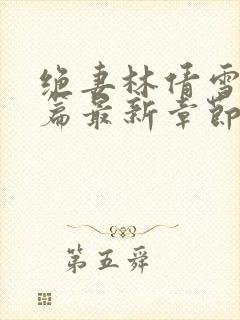 绝妻林倩雪
篇最新章节
第五舜